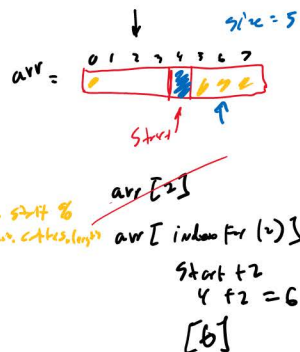 size = 5
0 1 2 3 4 5 6 7
arr =
Start
arr [2]
start %
arr [ index For (2) ]
Start + 2
4 + 2 = 6
[6]